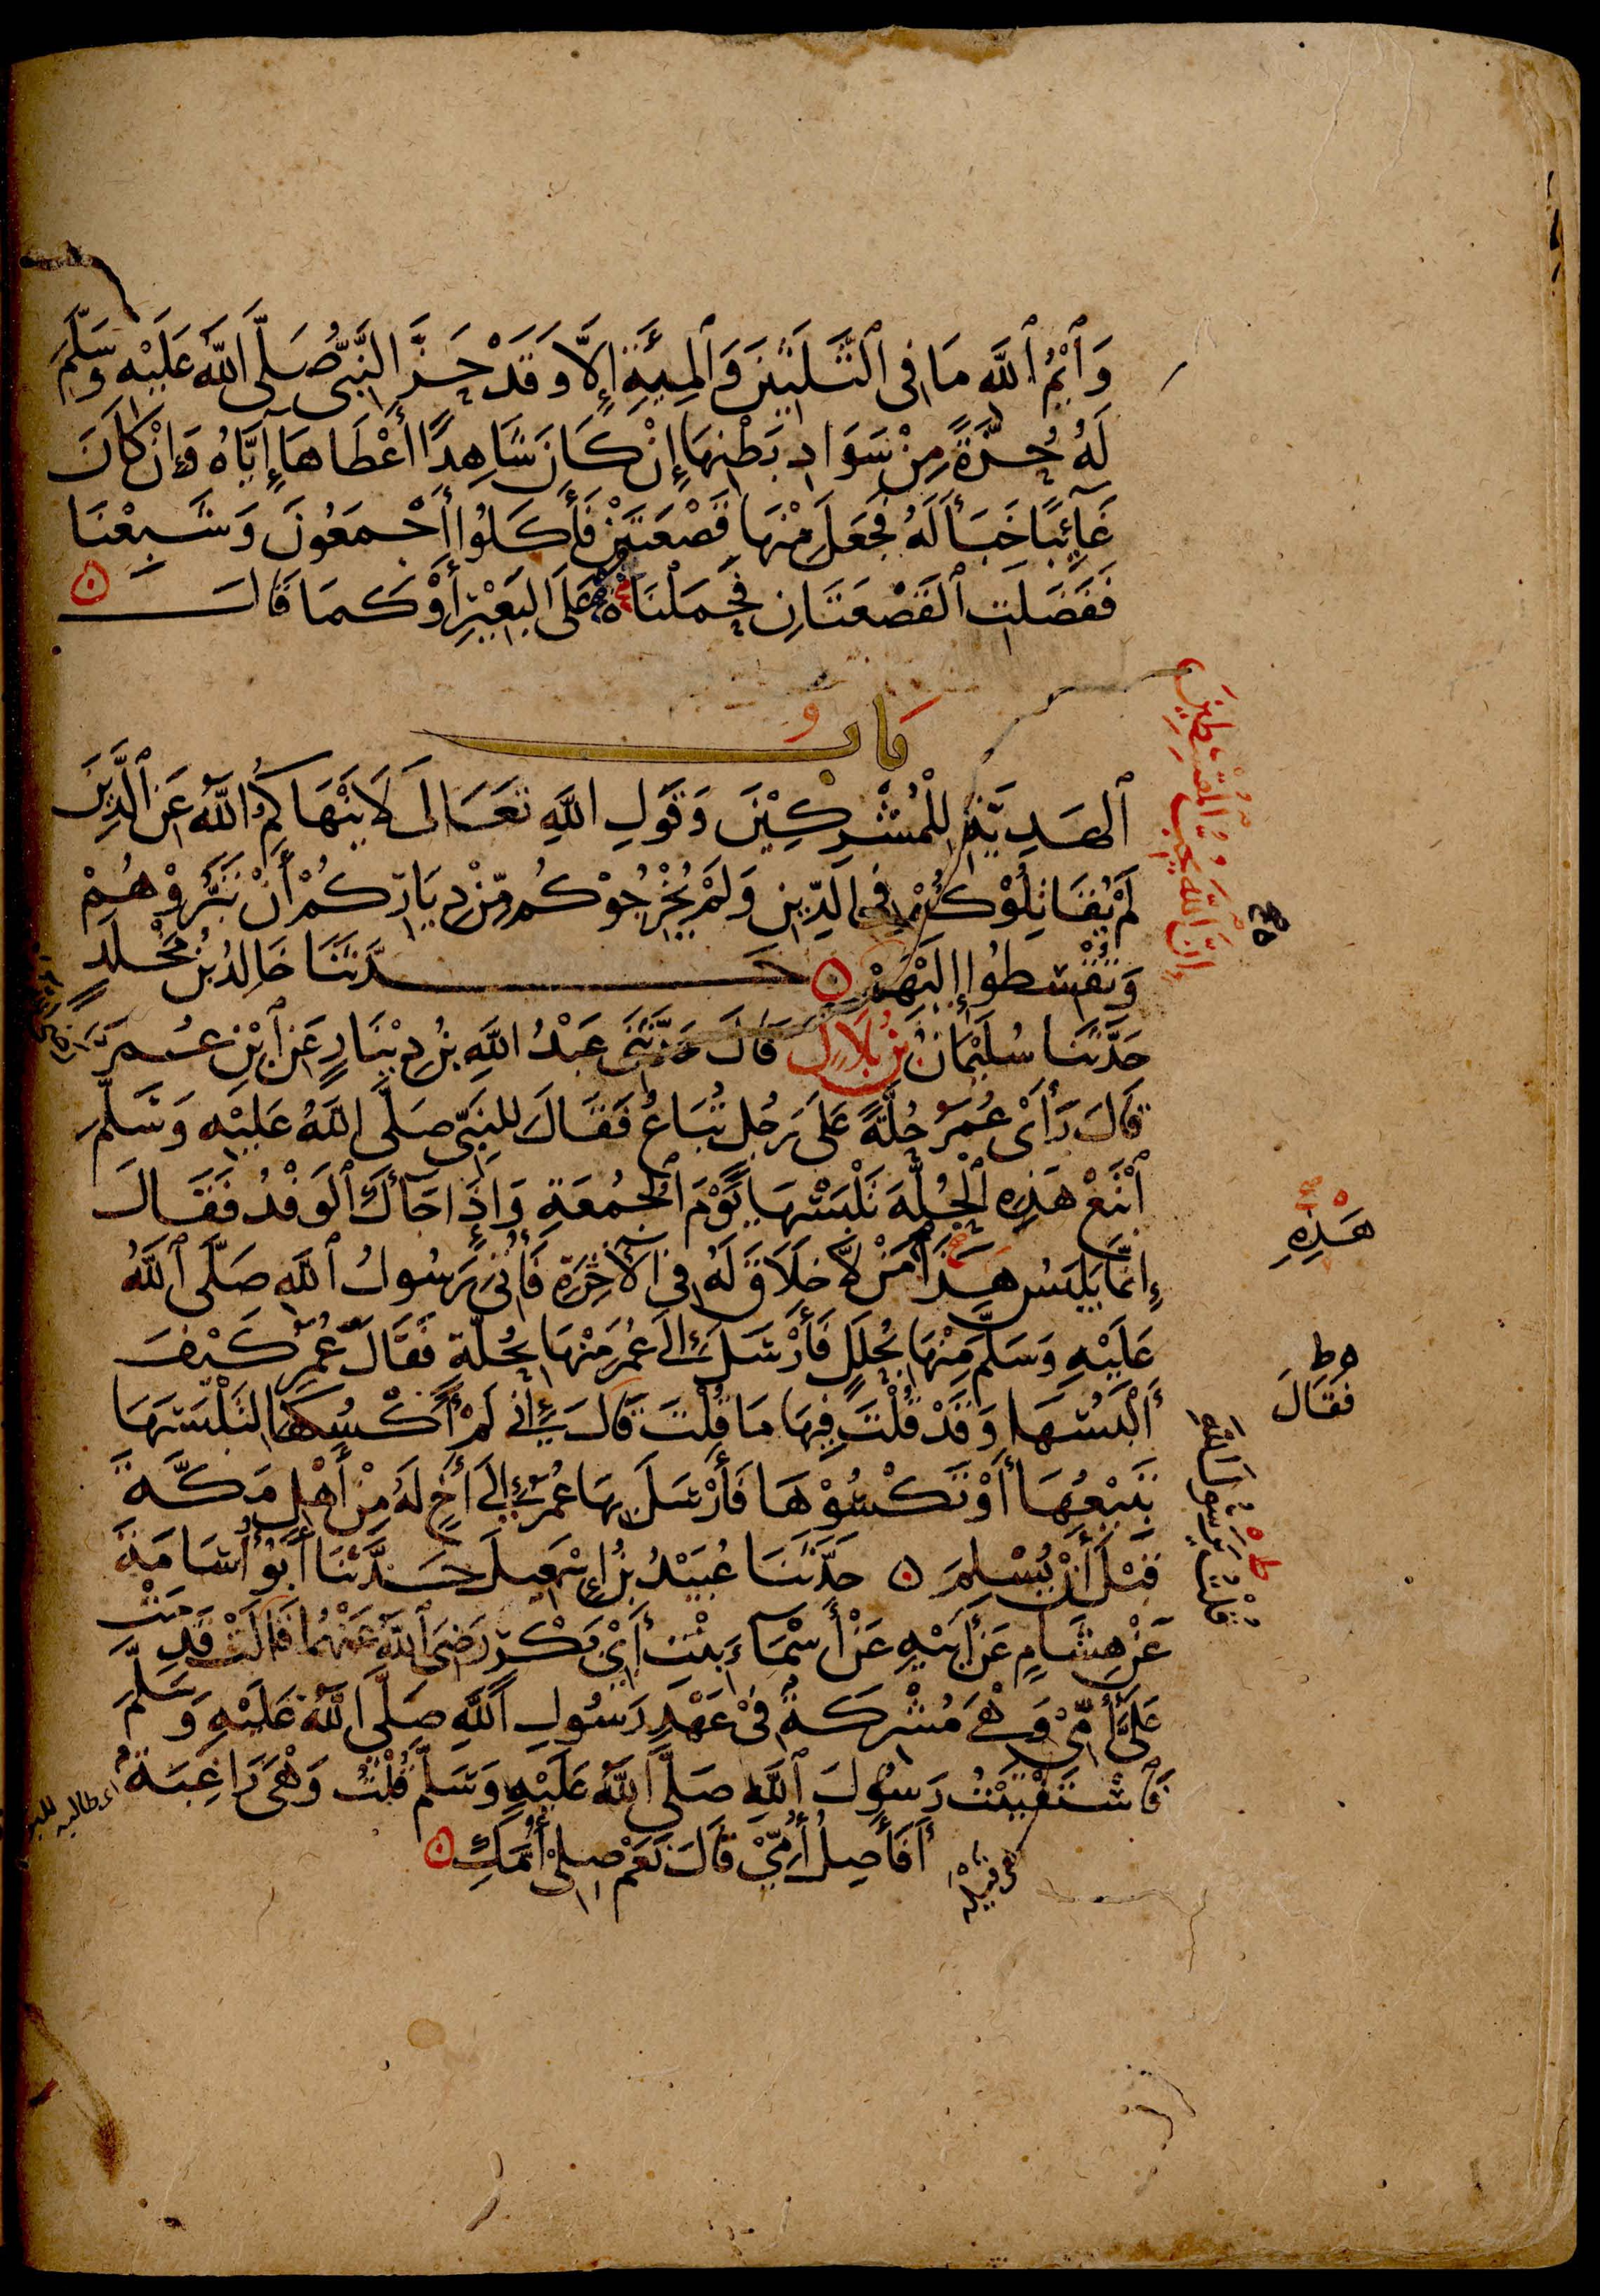 وَٱيْمُ ٱللَّهِ مَا فِى ٱلثَّلَثِينَ وَٱلْمِيَةِ إِلَّا وَقَدْ حَزَّ النَّبِىُّ صَلَّى اللَّهُ عَلَيْهِ وَسَلَّمَ
لَهُ حُزَّةً مِنْ سَوَادِ بَطْنِهَا إِنْ كَانَ شَاهِدًا أَعْطَاهَا إِيَّاهُ وَإِنْ كَانَ
غَآئِبًا خَبَأَ لَهُ فَجَعَلَ مِنْهَا قَصْعَتَيْنِ فَأَكَلُوا أَجْمَعُونَ وَشَبِعْنَا
فَفَضَلَتِ ٱلْقَصْعَتَانِ فَحَمَلْنَاهُ عَلَى الْبَعِيْرِ أَوْ كَمَا قَالَ
بَابُ
ٱلْهَدِيَّةِ لِلْمُشْرِكِيْنَ وَقَوْلِ اللَّهِ تَعَالَى لَا يَنْهَاكُمُ اللَّهُ عَنِ ٱلَّذِينَ
لَمْ يُقَاتِلُوْكُمْ فِى الدِّيْنِ وَلَمْ يُخْرِجُوْكُم مِّنْ دِيَارِكُمْ أَنْ تَبَرُّوْهُمْ
وَتُقْسِطُوا إِلَيْهِمْ حَدَّثَنَا خَالِدُ بْنُ مَخْلَدٍ
إِنَّ ٱللَّهَ يُحِبُّ الْمُقْسِطِينَ
حَدَّثَنَا سُلَيْمَانُ بْنُ بِلَالٍ قَالَ حَدَّثَنِى عَبْدُ اللَّهِ بْنُ دِيْنَارٍ عَنِ ٱبْنِ عُمَرَ
قَالَ رَأَىْ عُمَرُ حُلَّةً عَلَى رَجُلٍ تُبَاعُ فَقَالَ لِلنَّبِىِّ صَلَّى اللَّهُ عَلَيْهِ وَسَلَّمَ
ٱبْتَعْ هَذِهِ ٱلْحُلَّةَ تَلْبَسْهَا يَوْمَ ٱلْجُمُعَةِ وَإِذَا جَاءَكَ ٱلْوَفْدُ فَقَالَ
هَذِهِ
إِنَّمَا يَلْبَسُ هَذَا مَنْ لَا خَلَاقَ لَهُ فِى الْآخِرَةِ فَأُتِىَ رَسُولُ ٱللَّهِ صَلَّى ٱللَّهُ
عَلَيْهِ وَسَلَّمَ مِنْهَا بِحُلَلٍ فَأَرْسَلَ إِلَى عُمَرَ مِنْهَا بِحُلَّةٍ فَقَالَ عُمَرُ كَيْفَ
أَلْبَسُهَا وَقَدْ قُلْتَ فِيهَا مَا قُلْتَ قَالَ إِنِّى لَمْ أَكْسُكَهَا لِتَلْبَسَهَا
فَقَالَ
تَبِيْعُهَا أَوْ تَكْسُوْهَا فَأَرْسَلَ بِهَا عُمَرُ إِلَى أَخٍ لَهُ مِنْ أَهْلِ مَكَّةَ
قَبْلَ أَنْ يُسْلِمَ حَدَّثَنَا عُبَيْدُ بْنُ إِسْمَعِيلَ حَدَّثَنَا أَبُوْ أُسَامَةَ
عَنْ هِشَامٍ عَنْ أَبِيْهِ عَنْ أَسْمَآءَ بِنْتِ أَبِىْ بَكْرٍ رَضِىَ ٱللَّهُ عَنْهُمَا قَالَتْ قَدِمَتْ
عَلَىَّ أُمِّىْ وَهْىَ مُشْرِكَةٌ فِىْ عَهْدِ رَسُولِ ٱللَّهِ صَلَّى اللَّهُ عَلَيْهِ وَسَلَّمَ
فَٱسْتَفْتَيْتُ رَسُولَ ٱللَّهِ صَلَّى ٱللَّهُ عَلَيْهِ وَسَلَّمَ قُلْتُ وَهْىَ رَاغِبَةٌ
قلت يَا رسول الله
أَفَأَصِلُ أُمِّىْ قَالَ نَعَمْ صِلِىْ أُمَّكِ